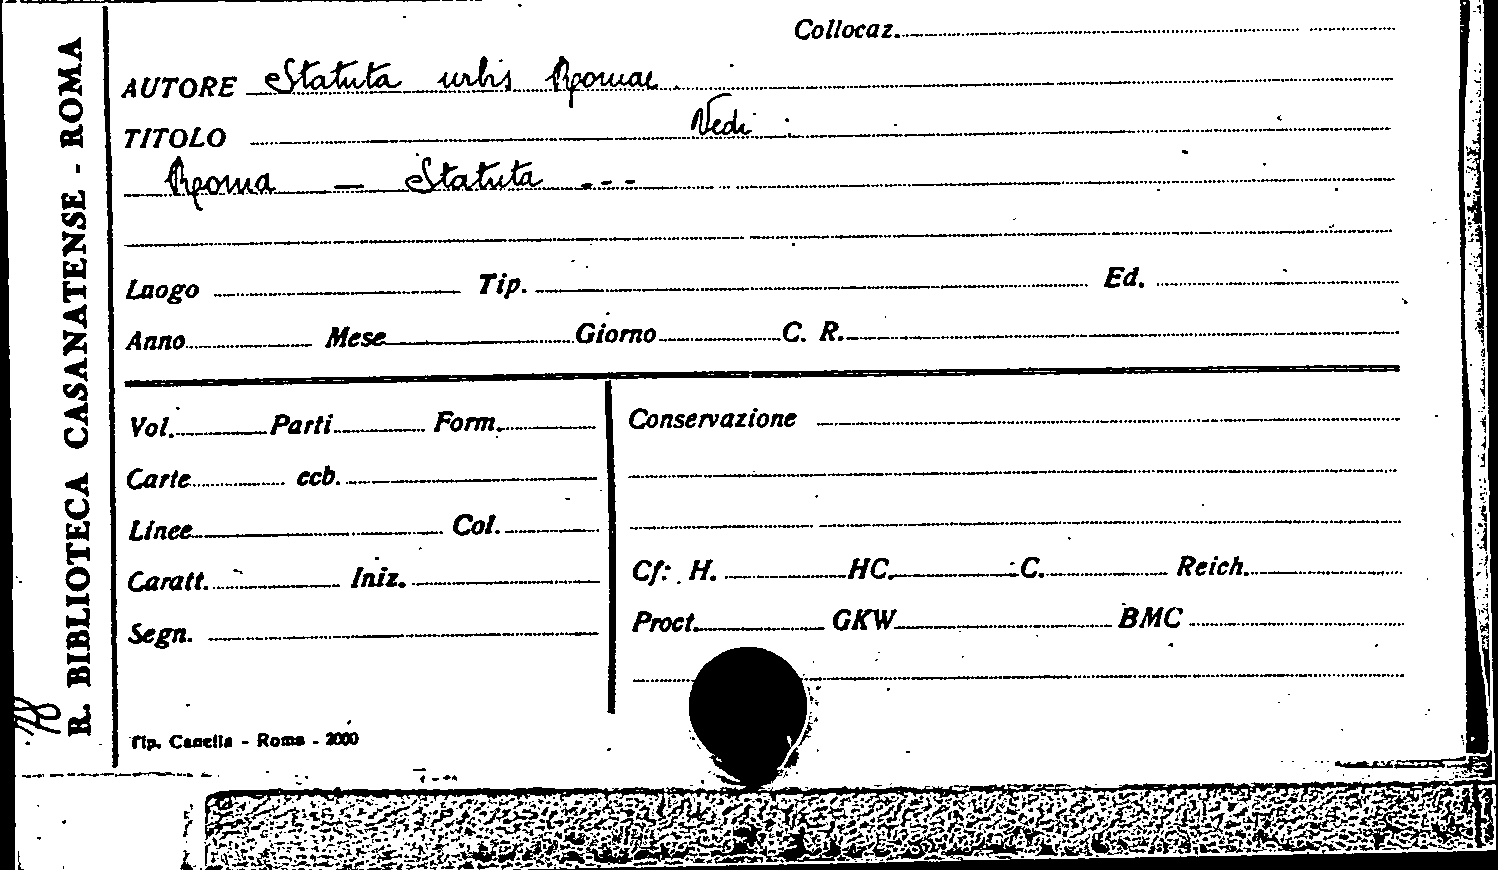 R. BIBLIOTECA CASANATENSE - ROMA
Collocaz.
AUTORE Statuta urbis Romae.
TITOLO Vedi :
Roma — Statuta ---
Luogo Tip. Ed.
Anno Mese Giorno C. R.
Vol. Parti Form.
Carte ccb.
Linee Col.
Caratt. Iniz.
Segn.
Conservazione
Cf: H. HC. C. Reich.
Proct. GKW BMC
Tip. Canella - Roma - 2000